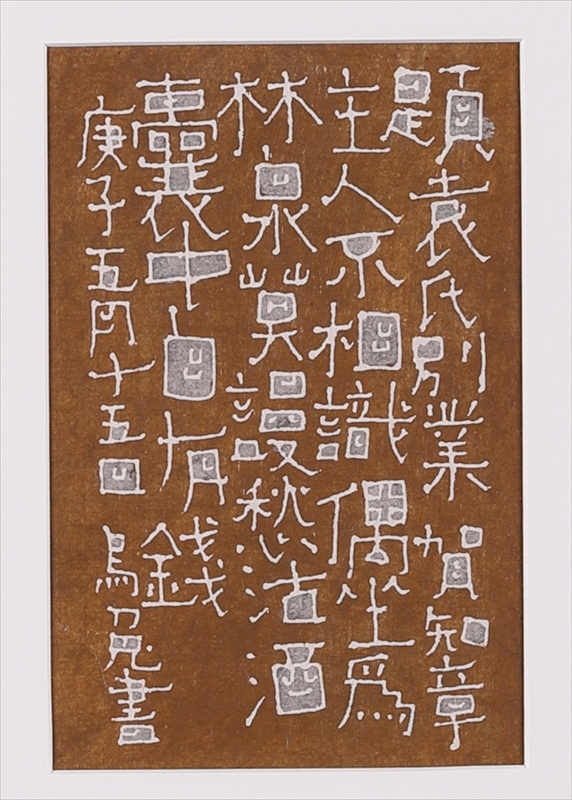 題袁氏別業 賀知章
主人不相識偶坐爲
林泉莫謾愁沽酒
囊中自有錢
庚子五月十五日 烏兔書